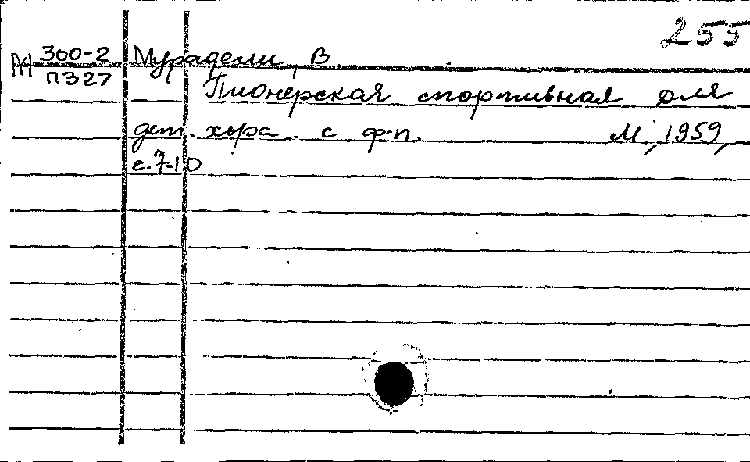 255
М 360-2 Мурадели, В.
П327 Пионерская спортивная для
дет. хора с ф-п. М., 1959,
с. 7-10